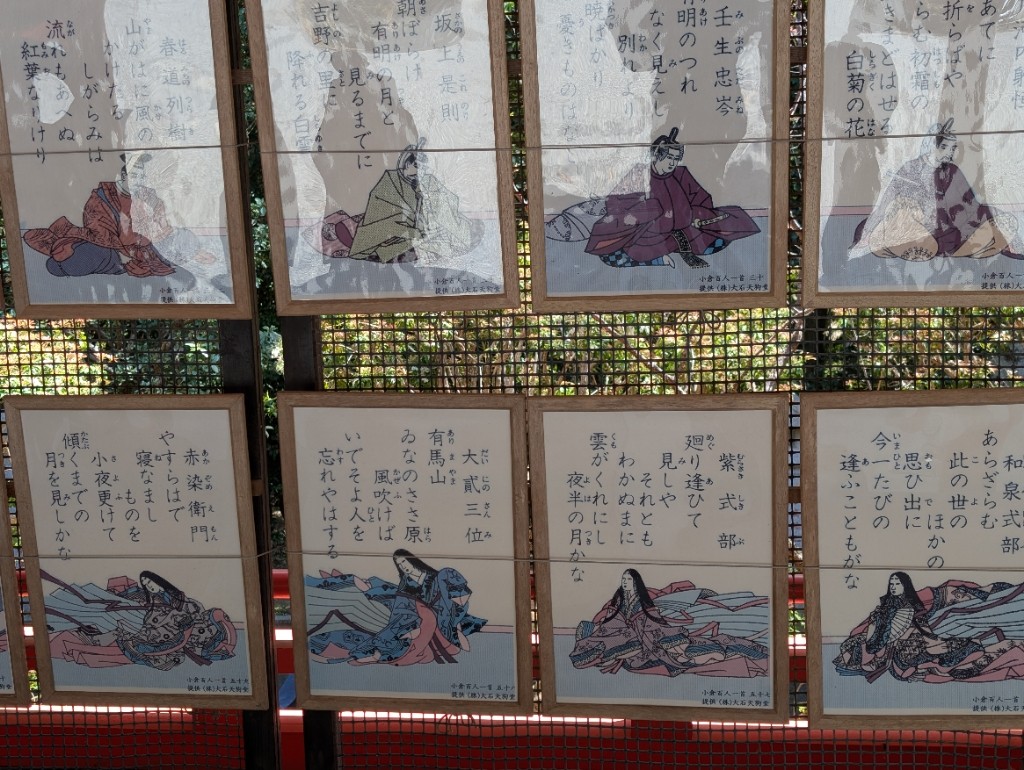 河内躬恒
あてに
折らばや
らむ初霜の
きまどはせる
白菊の花
小倉百人一首
提供 (株)大石天狗
壬生忠岑
有明のつれ
なく見えし
別れより
暁ばかり
憂きものはな
小倉百人一首 三十
提供 (株)大石天狗堂
坂上是則
朝ぼらけ
有明の月と
見るまでに
吉野の里に
降れる白雪
小倉百人一首
提供 (株)大石天狗堂
春道列樹
山がはに風の
かけたる
しがらみは
流れもあへぬ
紅葉なりけり
小倉百人一首
和泉式部
あらざらむ
此の世の
ほかの
思ひ出に
今一たびの
逢ふこともがな
小倉百人一首
提供 (株)大石天狗堂
紫式部
廻り逢ひて
見しや
それとも
わかぬまに
雲がくれにし
夜半の月かな
小倉百人一首 五十七
提供 (株)大石天狗堂
大貳三位
有馬山
ゐなのささ原
風吹けば
いでそよ人を
忘れやはする
小倉百人一首 五十八
提供 (株)大石天狗堂
赤染衛門
やすらはで
寝なまし
ものを
小夜更けて
傾くまでの
月を見しかな
小倉百人一首 五十九
提供 (株)大石天狗堂